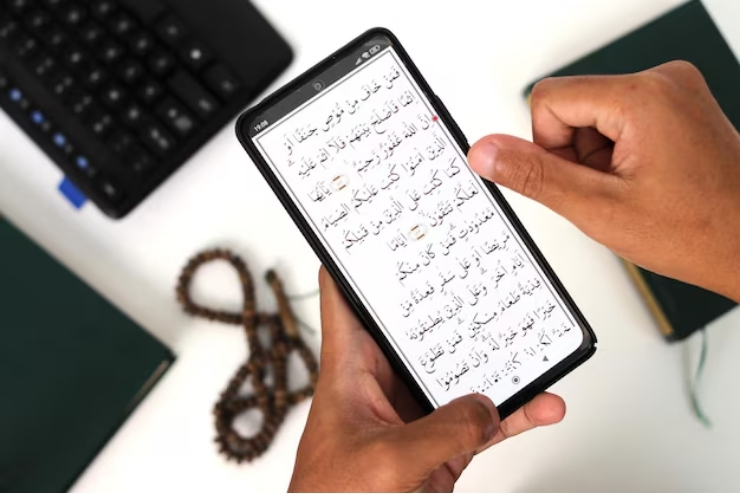 19:08
فَمَنْ خَافَ مِنْ مُّوْصٍ جَنَفًا اَوْ
اِثْمًا فَاَصْلَحَ بَيْنَهُمْ فَلَآ اِثْمَ عَلَيْهِ
اِنَّ اللّٰهَ غَفُوْرٌ رَّحِيْمٌ يٰٓاَيُّهَا
الَّذِيْنَ اٰمَنُوْا كُتِبَ عَلَيْكُمُ الصِّيَامُ
كَمَا كُتِبَ عَلَى الَّذِيْنَ مِنْ قَبْلِكُمْ
لَعَلَّكُمْ تَتَّقُوْنَ اَيَّامًا
مَّعْدُوْدٰتٍ فَمَنْ كَانَ مِنْكُمْ
مَّرِيْضًا اَوْ عَلٰى سَفَرٍ فَعِدَّةٌ مِّنْ
اَيَّامٍ اُخَرَ وَعَلَى الَّذِيْنَ يُطِيْقُوْنَهٗ
فِدْيَةٌ طَعَامُ مِسْكِيْنٍ فَمَنْ تَطَوَّعَ
خَيْرًا فَهُوَ خَيْرٌ لَّهٗ وَاَنْ تَصُوْمُوْا
خَيْرٌ لَّكُمْ اِنْ